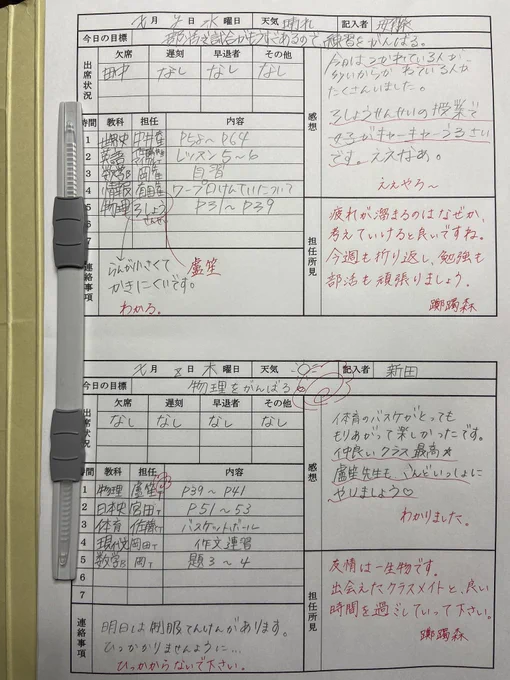 月 水 曜日 天気 晴れ 記入者
今日の目標 部活の試合がもうすぐあるので、練習をがんばる。
出席状況 欠席 遅刻 早退者 その他
田中 なし なし なし
時間 教科 担任 内容
1 世界史 中井 P58〜P64
2 英語 レッスン5〜6
3 数学B 岡 自習
4 情報 宮田 ワープロけんていについて
5 物理 ろしょうせんせい P31〜P39
6
7
連絡事項
らんが小さくてかきにくいです。
盧笙
わかる。
感想
今日はつかれている人が
多いからか ねている人が
たくさんいました。
ろしょうせんせいの授業で
女子がキャーキャーうるさい
です。ええなぁ。
ええやろ〜
担任所見
疲れが溜まるのはなぜか、
考えていけると良いですね。
今週も折り返し、勉強も
部活も頑張りましょう。
躑躅森
月 8日 木 曜日 天気 記入者 新田
今日の目標 物理をがんばる
出席状況 欠席 遅刻 早退者 その他
なし なし なし なし
時間 教科 担任 内容
1 物理 盧笙 P39〜P41
2 日本史 宮田T P51〜53
3 体育 佐藤T バスケットボール
4 現代文 岡田T 作文練習
5 数学B 岡T 題3〜4
6
7
連絡事項
明日は制服てんけんがあります。
ひっかかりませんように…
ひっかからないで下さい。
感想
体育のバスケがとっても
もりあがって楽しかったです。
仲良いクラス最高★
盧笙先生も こんどいっしょに
やりましょう♡
わかりました。
担任所見
友情は一生物です。
出会えたクラスメイトと、良い
時間を過ごしていって下さい。
躑躅森